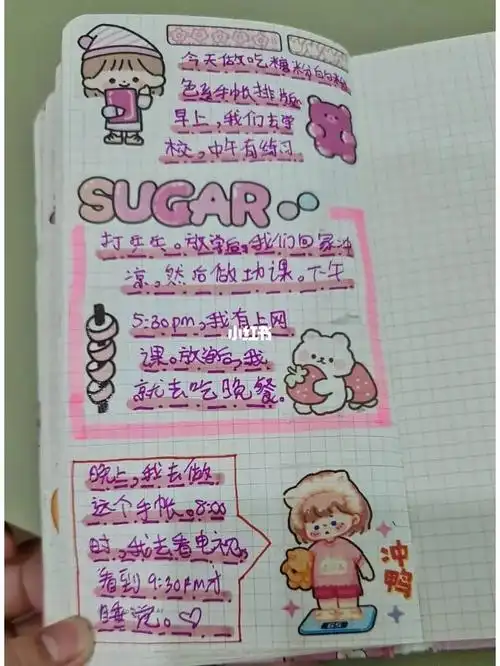 今天做吃糖粉白粉
色系手帐排版
早上，我们去学
校，中午有练习
SUGAR
打乒乓。放学后，我们回家冲
凉，然后做功课。下午
5:30pm，我有上网
课。放学后，我
就去吃晚餐。
小红书
晚上，我去做
这个手帐。8:00
时，我去看电视，
看到9:30PM才
睡觉。♡
冲
鸭